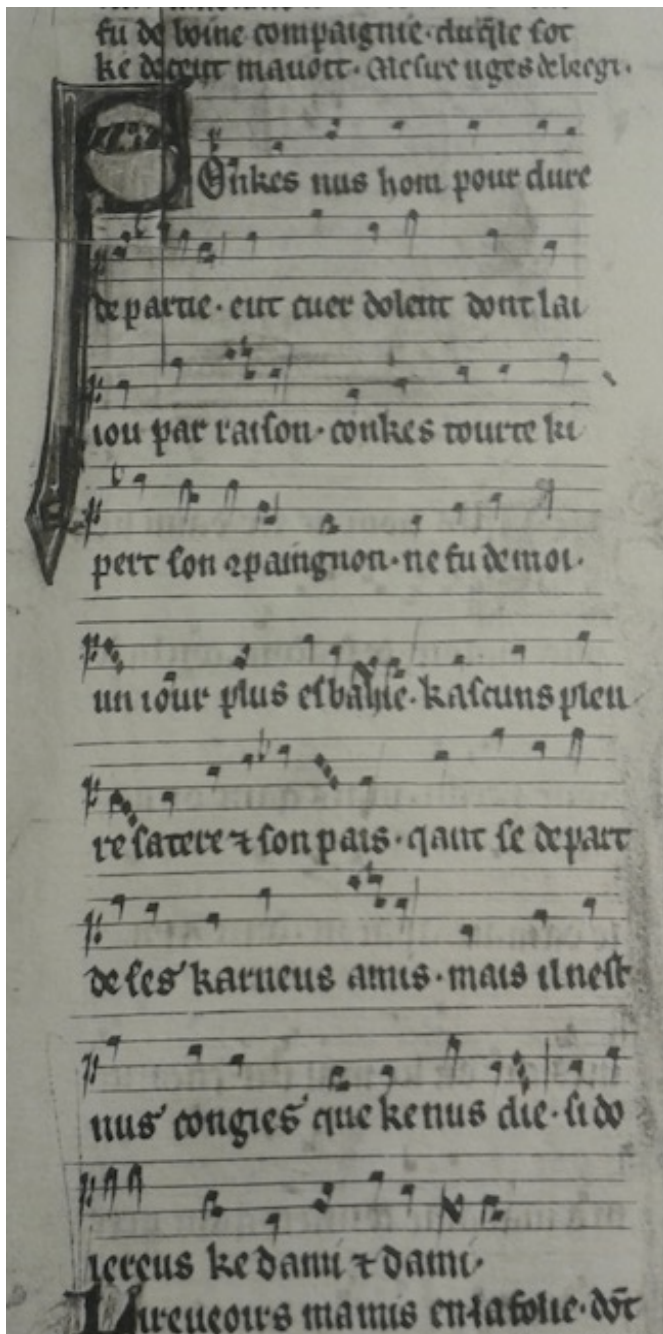 fu de boine compaignie· du q̃le sot
ke deceut mavott· Mesire uges de bregi·
Onkes nus hom pour dure
departie· eut cuer dolent dont lai
iou par raison· conkes tourte ki
pert son ꝯpaingnon· ne fu de moi·
un iour plus esbahie· kascuns pleu
re sa tere ⁊ son pais· qant se depart
de ses karneus amis· mais il nest
nus congies que ke nus die· si do
lereus ke dami ⁊ dami·
Li reveoirs mamis en la folie· dõt